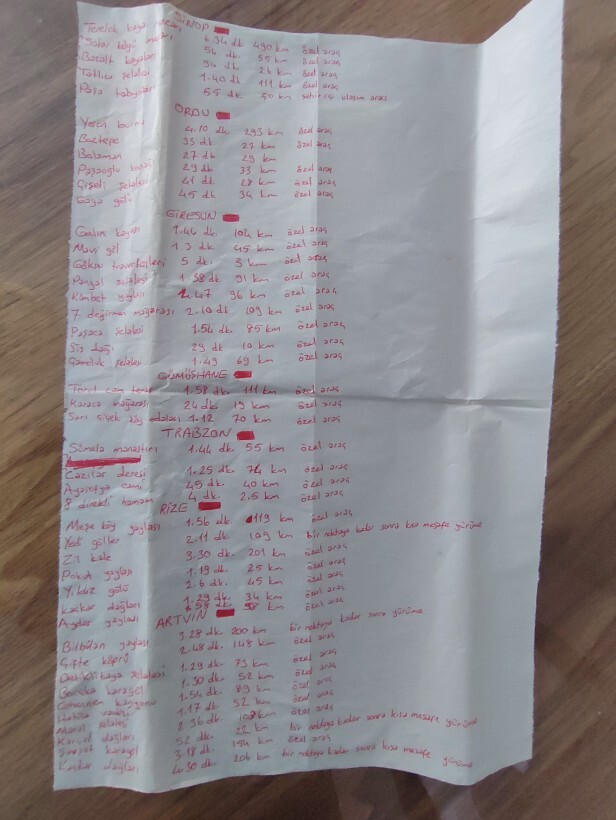 SİNOP
Terelek kaya mezarı 6.34 dk 490 km özel araç
Salar köyü mezarı 54 dk 55 km özel araç
Bazalt kayaları 34 dk 26 km özel araç
Tatlıca şelalesi 1.40 dk 111 km özel araç
Paşa tabyaları 55 dk 50 km şehir içi ulaşım araç
ORDU
Yason burnu 4.10 dk. 293 km özel araç
Boztepe 35 dk 27 km özel araç
Bolaman 27 dk 29 km
Paşaoğlu konağı 29 dk 33 km özel araç
Çiseli şelalesi 41 dk 28 km özel araç
Gaga gölü 45 dk 34 km özel araç
GİRESUN
Gelin kayası 1.44 dk 104 km özel araç
Mavi göl 1.3 dk 45 km özel araç
Göksu travertenleri 5 dk 3 km özel araç
1.38 dk 91 km özel araç
Kümbet yaylası 1.47 96 km özel araç
7 değirmen mağarası 2.10 dk 109 km özel araç
Paşaca şelalesi 1.54 dk 85 km özel araç
Sis dağı 29 dk 10 km özel araç
şelalesi 1.49 69 km özel araç
GÜMÜŞHANE
Torul cam teras 1.58 dk 111 km özel araç
Karaca mağarası 24 dk 19 km özel araç
Sarı çiçek köy odaları 1.12 70 km özel araç
TRABZON
Sümela manastırı 1.44 dk 55 km özel araç
Cazılar deresi 1.25 dk 74 km özel araç
Ayasofya cami 45 dk 40 km özel araç
8 direkli hamam 4 dk 2.5 km özel araç
RİZE
Meşe köy yaylası 1.56 dk. 119 km özel araç
Yedi göller 2.11 dk 109 km bir noktaya kadar sonra kısa mesafe yürüme
Zil kale 3.30 dk. 201 km özel araç
Pokut yaylası 1.19 dk 25 km özel araç
Yıldız gölü 2.6 dk 45 km özel araç
Kaçkar dağları 1.29 dk 34 km özel araç
Ayder yaylası dk. km özel araç
ARTVİN
Bilbilan yaylası 3.28 dk 200 km bir noktaya kadar sonra yürüme
Çifte köprü 2.48 dk 148 km özel araç
Delikli kaya şelalesi 1.29 dk 73 km özel araç
Borçka karagöl 1.30 dk 52 km özel araç
Cehennem kanyonu 1.54 dk 89 km özel araç
Hatila vadisi 1.17 dk 52 km özel araç
Maral şelalesi 2.36 dk km özel araç
Karçal dağları 52 dk. 22 km bir noktaya kadar sonra kısa mesafe yürüme
Şavşat karagöl 3.18 dk. 194 km özel araç
Kaçkar dağları 4.30 dk. 206 km bir noktaya kadar sonra kısa mesafe yürüme